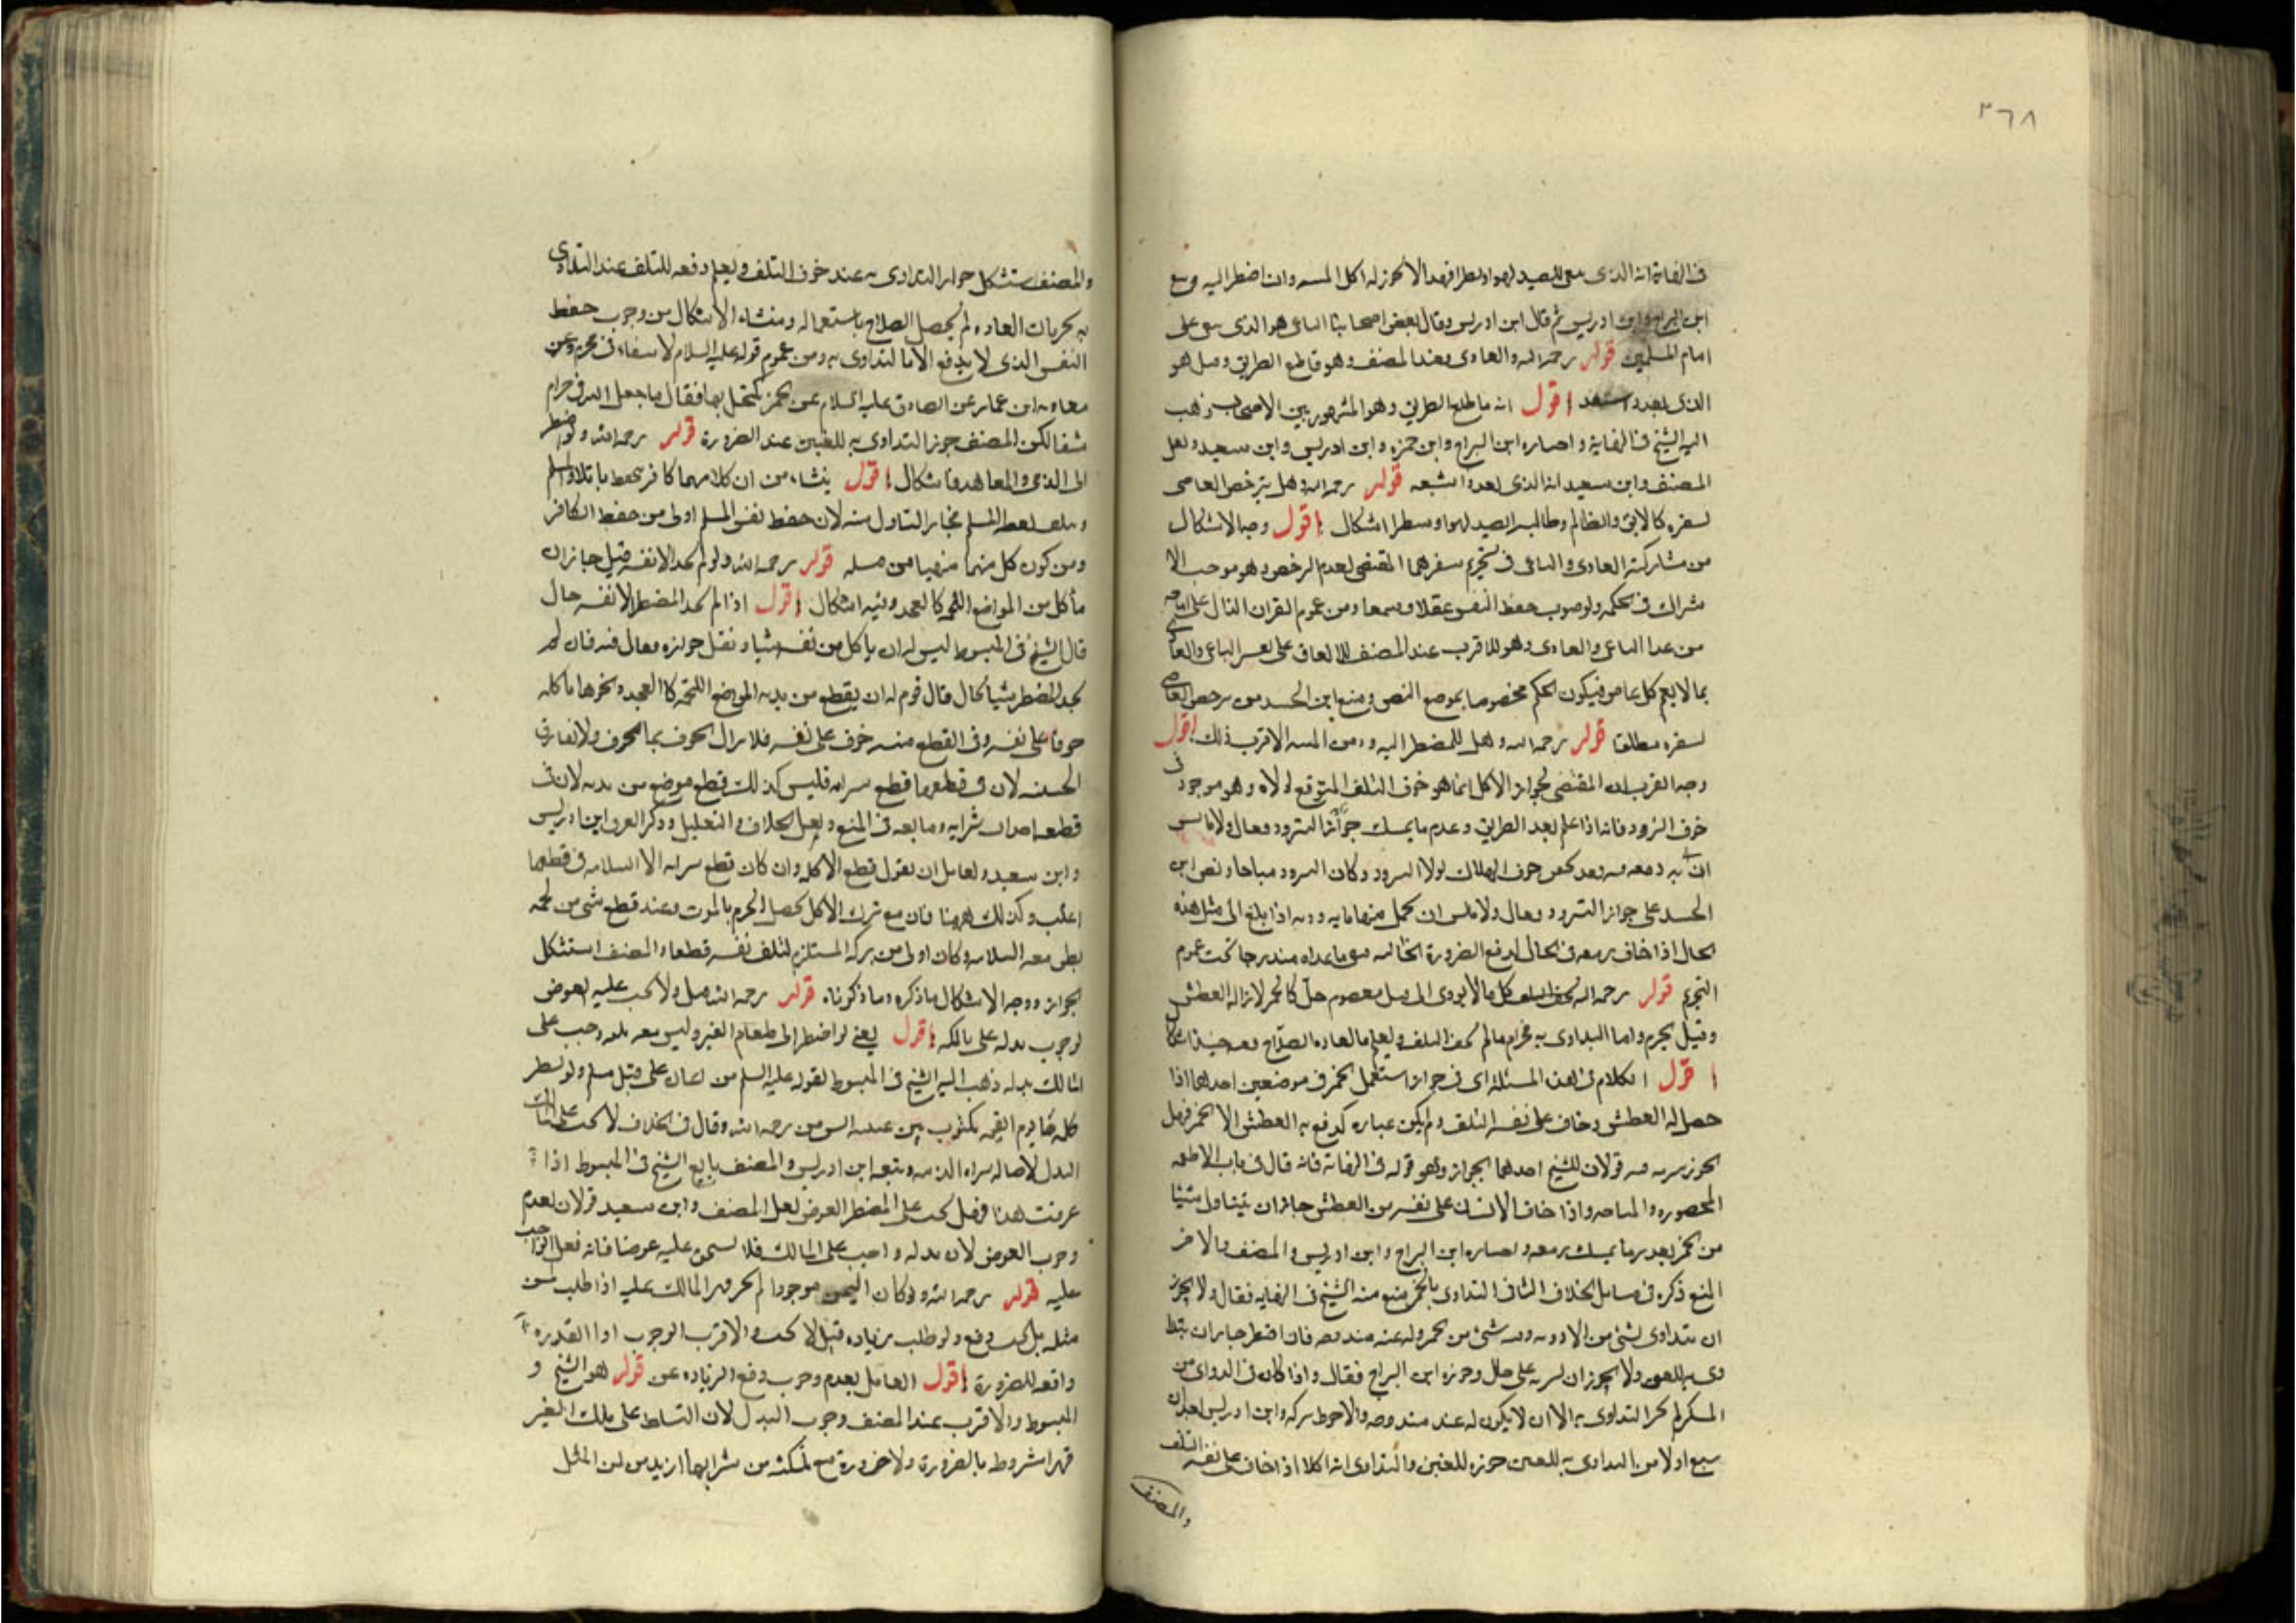 ٣٦٨
فى النهاية انه الذى بغى الصيد لهوا وبطرا فهذا لا يجوز له اكل الميتة وان اضطر اليه وتبع
ابن البراج وابن ادريس ثم قال ابن ادريس وقال بعض اصحابنا الباغى هو الذى يبغى على
امام المسلمين قوله رحمه الله والعادى عند المصنف وهو قاطع الطريق وقيل هو
الذى يعدو اقول انه قاطع الطريق وهو المشهور بين الاصحاب ذهب
اليه الشيخ فى النهاية واختاره ابن البراج وابن حمزه وابن ادريس وابن سعيد ونقل
المصنف وابن سعيد انه الذى يعدوا شبعه قوله رحمه الله وهل يترخص العاصى
لسفره كالابق والظالم وطالب الصيد لهوا وبطرا اشكال اقول وجه الاشكال
من مشاركته العادى والباغى فى تحريم سفرهما المقتضى لعدم الرخص وهو موجب الا
شراك فى الحكم ولوجوب حفظ النفس عقلا وسمعا ومن عموم القران الدال على اباحه
من عدا الباغى والعادى وهو الاقرب عند المصنف للاتفاق على تفسير الباغى والعادى
بما لا يعم كل عاص فيكون الحكم مخصوصا بموضع النص ومنع ابن الجنيد من ترخص العاصى
لسفره مطلقا قوله رحمه الله وهل للمضطر التزود من الميتة الاقرب ذلك اقول
وجه القرب ان المقتضى لجواز الاكل انما هو خوف التلف المتوقع لولاه وهو موجود فى
خوف التزود فانه اذا علم بعد الطريق وعدم ما يمسك جواز التزود وقال ولا باس
ان به رمقه فقد تحقق خوف الهلاك لولا التزود وكان التزود مباحا ونص ابن
الجنيد على جواز التزود وقال ولا باس ان يحمل منها ما يتزود به اذا بلغ الى مثل هذه
الحال اذا خاف رمقه فى الحال لدفع الضرورة الحاليه فبقى ما عداه مندرجا تحت عموم
التحريم قوله رحمه الله كل ما لا يودى الى قتل معصوم حل كالخمر لازالة العطش
وقيل يحرم واما التداوى به فحرام ما لم يخف التلف ويعلم بالعاده الصلاح فعه حينئذ
اقول الكلام فى هذه المسئلة اى فى جواز استعمال الخمر فى موضعين احدهما اذا
حصل له العطش وخاف على نفسه التلف ولم يكن عباره يدفع به العطش الا الخمر فهل
يجوز شربه فيه قولان للشيخ احدهما الجواز وهو قوله فى النهاية فانه قال فى باب الاطعمه
المحصوره والمباحه واذا خاف الانسان على نفسه من العطش جاز ان يتناول شيئا
من الخمر بقدر ما يمسك رمقه واختاره ابن البراج وابن ادريس والمصنف والاخر
المنع ذكره فى مسائل الخلاف الثانى التداوى بالخمر منع منه الشيخ فى النهايه فقال ولا يجوز
ان يتداوى بشئ من الادويه وفيه شئ من خمر وله عنه مندوحه فان اضطر جاز ان يتدا
وى به للعين ولا يجوز ان يشربه على حال وجوزه ابن البراج فقال واذا كان فى الدواء من
المسكر لم يجز التداوى به الا ان لا يكون له عنه مندوحه والاحوط تركه وابن ادريس
منع اولا من التداوى به للعين جوزه للعين والتداوى اكلا اذا خاف على نفسه التلف
والمصنف
والمصنف استشكل جواز التداوى به عند خوف التلف ويعلم دفعه للتلف عند التداوى
به بجريان العاده لم يحصل الصلاح باستعماله ومنشاء الاشكال من وجوب حفظ
النفس الذى لا يدفع الا بالتداوى به ومن عموم قوله عليه السلام لا شفاء فى محرم وعن
معاويه ابن عمار عن الصادق عليه السلام عن خمر يكتحل بها فقال ما جعل الله فى حرام
شفا لكن المصنف جوز التداوى به للعين عند الضرورة قوله رحمه الله ولو اضطر
الى الذمى والمعاهد فاشكال اقول ينشاء من ان كلا منهما كافر يحفظ باتلافه المسلم
لحفظ المسلم فجاز التناول منه لان حفظ نفس المسلم اولى من حفظ الكافر
ومن كون كل منهما منهيا من قتله قوله رحمه الله ولو لم يجد الا نفسه قيل جاز ان
يأكل من المواضع اللحمه كالفخذ وفيه اشكال اقول اذا لم يجد المضطر الا نفسه حال
قال الشيخ فى المبسوط ليس له ان ياكل من نفسه شيئا ونقل جوازه فقال فيه فان لم
يجد المضطر شيئا بحال قال قوم له ان يقطع من بدنه المواضع اللحمة كالفخذ ونحوها ياكله
خوفا على نفسه وفى القطع منه خوف على نفسه فلا يزال الخوف بما الخوف ولا يفارق
الخبيثه لان فى قطعها قطع سرايه فليس كذلك قطع موضع من بدنه لان فى
قطعه احداث سرايه وتابعه فى المنع ونقل الخلاف والتعليل وذكر الفرق ابن ادريس
وابن سعيد ولقائل ان يقول قطع الاكله وان كان قطع سرايه الا السلامه فى قطعها
اغلب وكذلك ههنا فان مع ترك الاكل يحصل الجزم بالموت وعند قطع شى من لحمه
يظن معه السلامه وكان اولى من تركه المستلزم لتلف نفسه قطعا والمصنف استشكل
الجواز ووجه الاشكال ما ذكره وما ذكرناه قوله رحمه الله قيل ولا يجب عليه العوض
لوجوب بذله على مالكه اقول يعنى لو اضطر الى طعام الغير وليس معه ثمنه وجب على
المالك بذله ذهب اليه الشيخ فى المبسوط لقوله عليه السلم من اعان على قتل مسلم ولو بشطر
كلمه جا يوم القيمه مكتوب بين عينيه ايس من رحمه الله وقال فى الخلاف لا يجب على المالك
البذل لاصاله براه الذمه وتبعه ابن ادريس والمصنف تابع الشيخ فى المبسوط اذا
عرفت هذا فهل يجب على المضطر العوض نقل المصنف وابن سعيد قولان لعدم
وجوب العوض لان بذله واجب على المالك فلا يستحق عليه عوضا فانه فعل الواجب
عليه قوله رحمه الله ولو كان الثمن موجودا لم يجز قهر المالك عليه اذا طلب ثمن
مثله بل يجب دفع ولو طلب زياده قيل لا يجب والاقرب الوجوب اذا القدره
دافعه للضرورة اقول القائل بعدم وجوب دفع الزياده عن قوله هو الشيخ فى
المبسوط والاقرب عند المصنف وجوب البذل لان التسلط على ملك الغير
قهرا مشروط بالضرورة ولا ضرورة مع تمكنه من شرائها ازيد من ثمن المثل